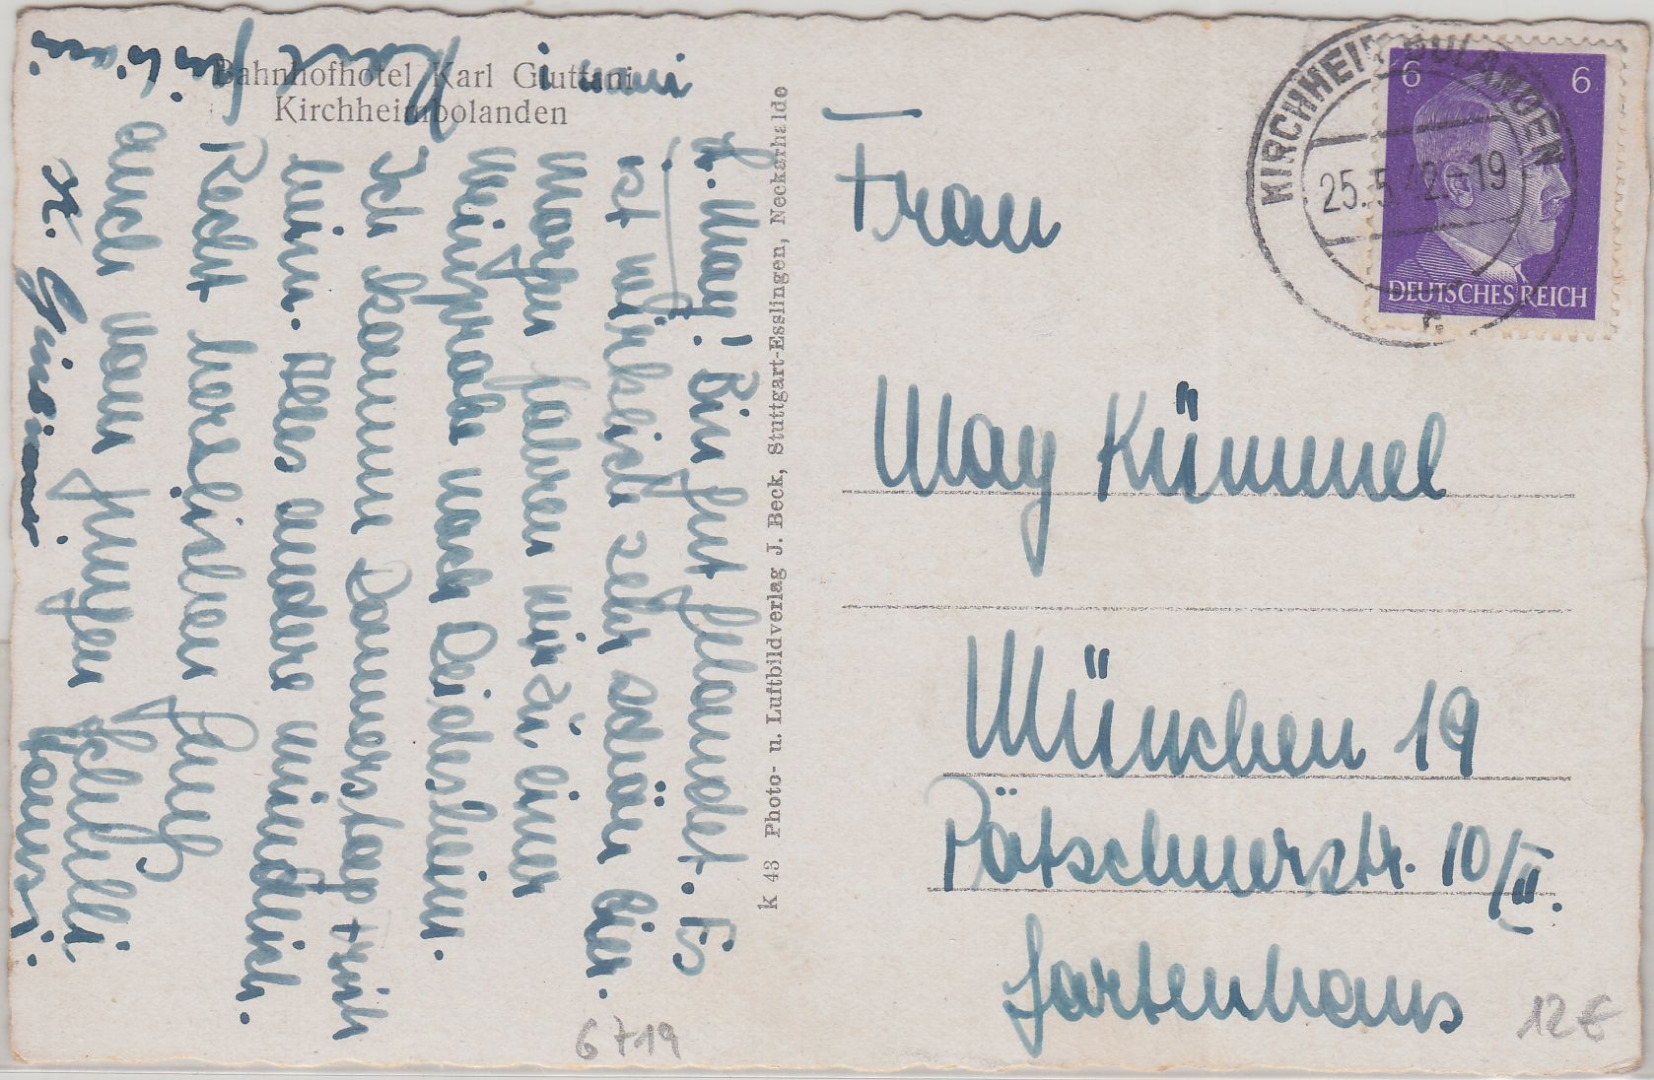 Bahnhofhotel Karl Gluttani
Kirchheimbolanden
L. May! Bin gut gelandet. Es
ist wirklich sehr schön hier.
Morgen fahren wir zu einer
Weinprobe nach Deidesheim.
Ich komme Donnerstag früh
heim. Alles andere mündlich.
Recht herzlichen Gruß
auch vom jungen
Henri
Karl
k 43 Photo- u. Luftbildverlag J. Beck, Stuttgart-Esslingen, Neckarhalde
KIRCHHEIMBOLANDEN
25.5.42.-19
6 6
DEUTSCHES REICH
Frau
May Kümmel
München 19
Pötschnerstr. 10/II.
Gartenhaus
6719
12 €